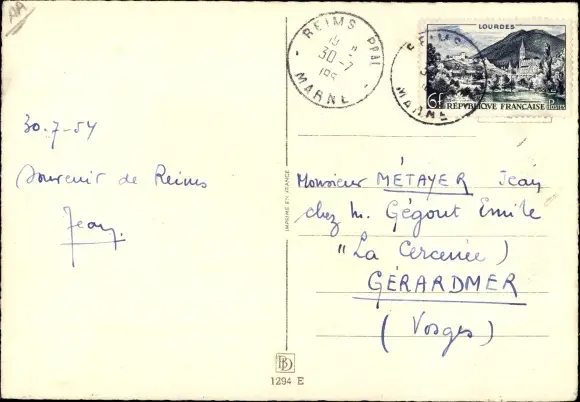 AA
REIMS Ppal
30-7
195
MARNE
REIMS
MARNE
LOURDES
6f RÉPUBLIQUE FRANÇAISE Postes
30.7-54
Souvenir de Reims
Jean
IMPRIMÉ EN FRANCE
Monsieur MÉTAYER Jean
chez M. Gégout Emile
"La Cercenée)
GÉRARDMER
(Vosges)
BD
1294 E